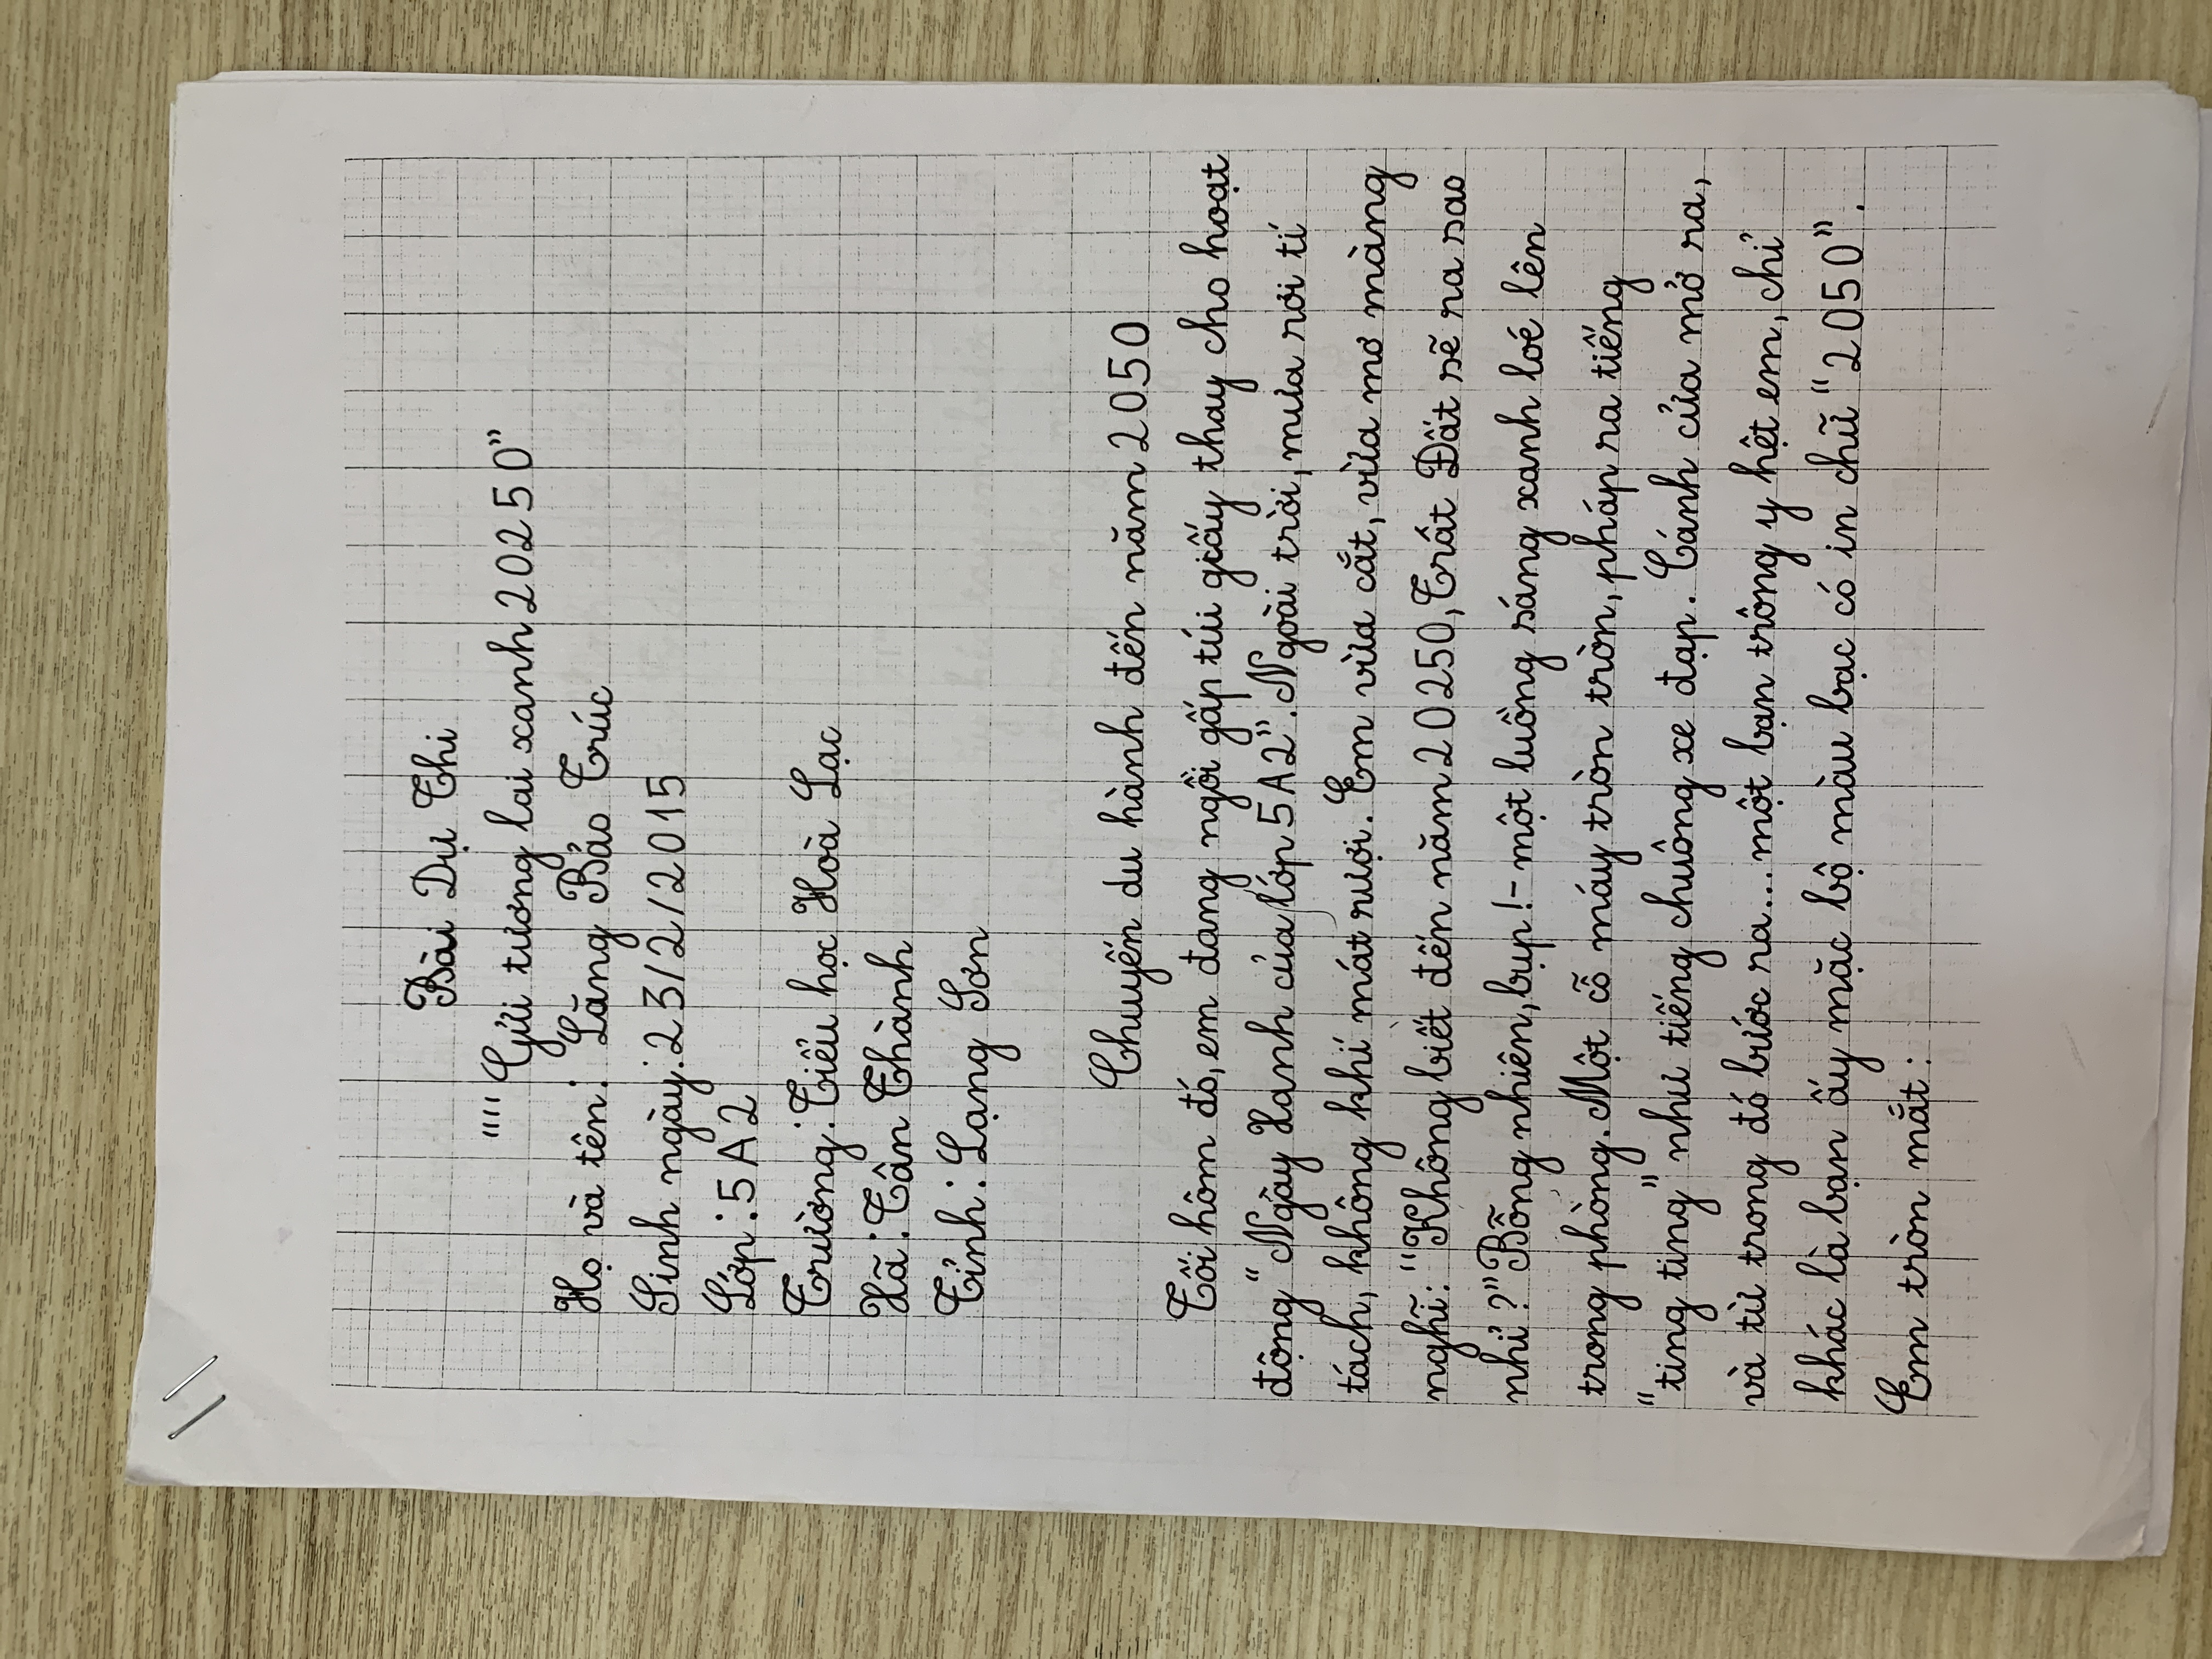 Bài Dự Thi
"" Gửi tương lai xanh 202550"
Họ và tên: Lăng Bảo Trúc
Sinh ngày: 23/2/2015
Lớp: 5A2
Trường: Tiểu học Hoà Lạc
Xã: Tân Thành
Tỉnh: Lạng Sơn
Chuyến du hành đến năm 2050
Tối hôm đó, em đang ngồi gấp túi giấy thay cho hoạt
động "Ngày Xanh của lớp 5A2". Ngoài trời, mưa rơi tí
tách, không khí mát rượi. Em vừa cắt, vừa mơ màng
nghĩ: "Không biết đến năm 20250, Trât Đất sẽ ra sao
nhỉ?" Bỗng nhiên, bụp! - một luồng sáng xanh loé lên
trong phòng. Một cỗ máy tròn tròn, pháp ra tiếng
"ting ting" như tiếng chuông xe đạp. Cánh cửa mở ra,
và từ trong đó bước ra... một bạn trông y hệt em, chỉ
khác là bạn ấy mặc bộ màu bạc có in chữ "2050".
Em tròn mắt: